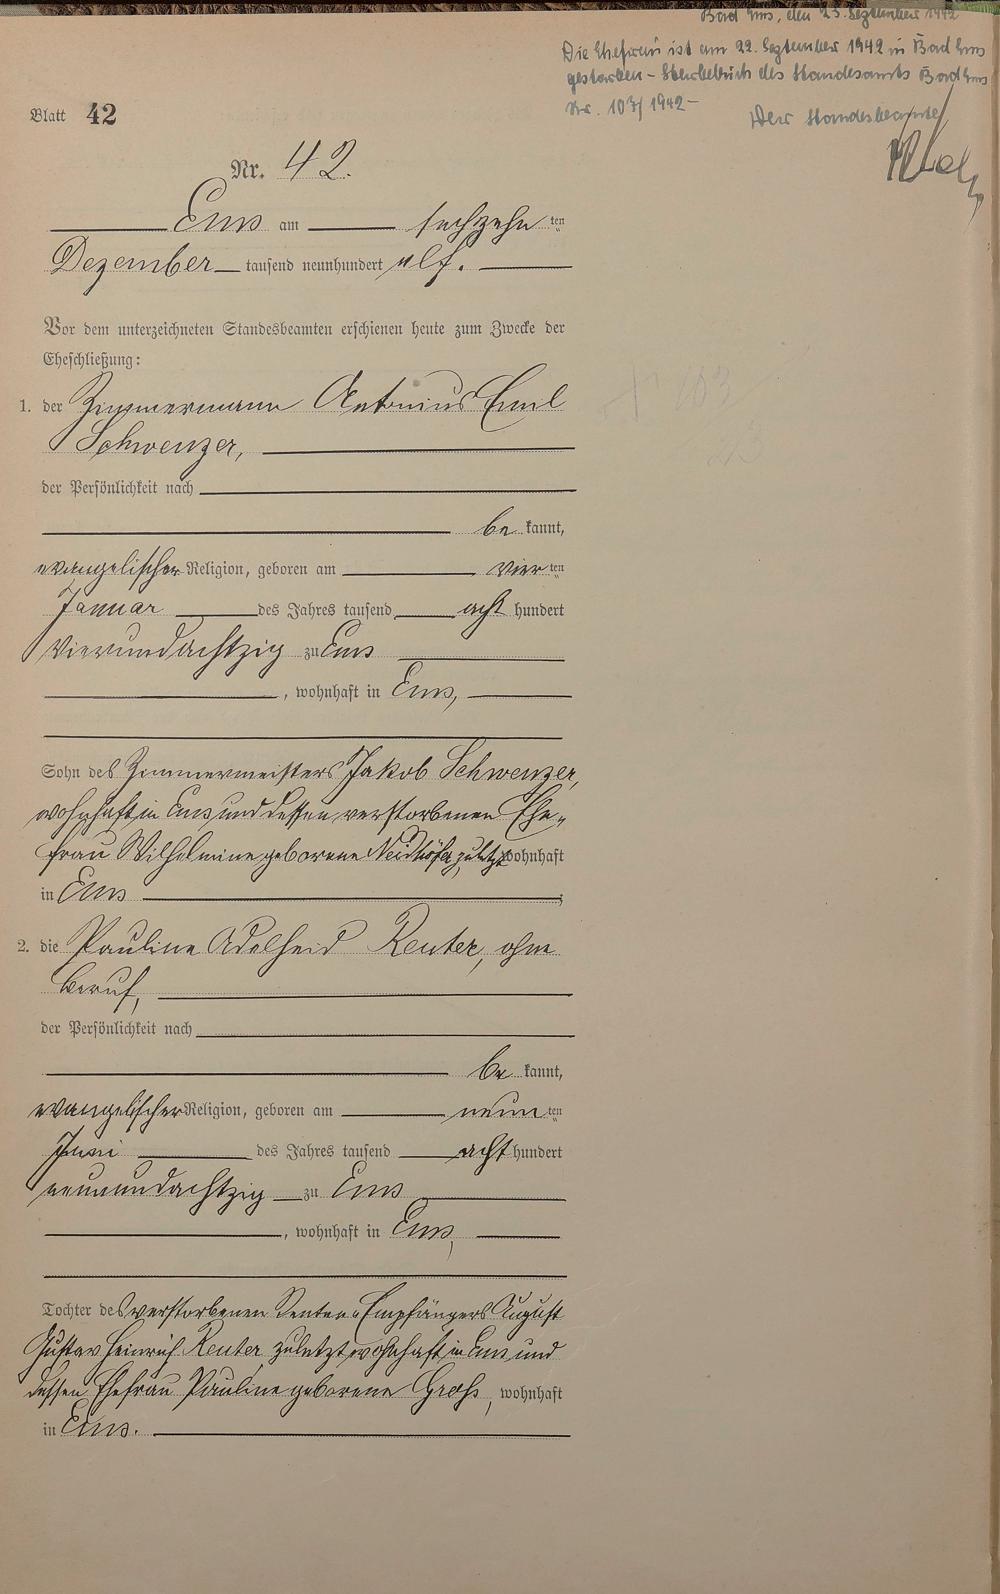 Bad Ems, den 23. September 1942
Die Ehefrau ist am 22. September 1942 in Bad Ems
gestorben - Sterbebuch des Standesamts Bad Ems
Nr. 103/1942 -
Der Standesbeamte
Blatt 42
Nr. 42.
Ems am sechzehnten
Dezember tausend neunhundert elf.
Vor dem unterzeichneten Standesbeamten erschienen heute zum Zwecke der
Eheschließung:
1. der Zimmermann Antonius Emil
Schwenzer,
der Persönlichkeit nach
be kannt,
evangelischer Religion, geboren am vierten
Januar des Jahres tausend acht hundert
vierundachtzig zu Ems
, wohnhaft in Ems,
Sohn des Zimmermeisters Jakob Schwenzer,
wohnhaft in Ems und dessen verstorbenen Ehe-
frau Wilhelmine geborene Neidhöfer, zuletzt wohnhaft
in Ems ;
2. die Pauline Adelheid Reuter, ohne
Beruf,
der Persönlichkeit nach
be kannt,
evangelischer Religion, geboren am neunten
Juni des Jahres tausend acht hundert
neunundachtzig zu Ems
, wohnhaft in Ems,
Tochter des verstorbenen Renten-Empfängers August
Gustav Heinrich Reuter zuletzt wohnhaft in Ems und
dessen Ehefrau Pauline geborene Groß, wohnhaft
in Ems.